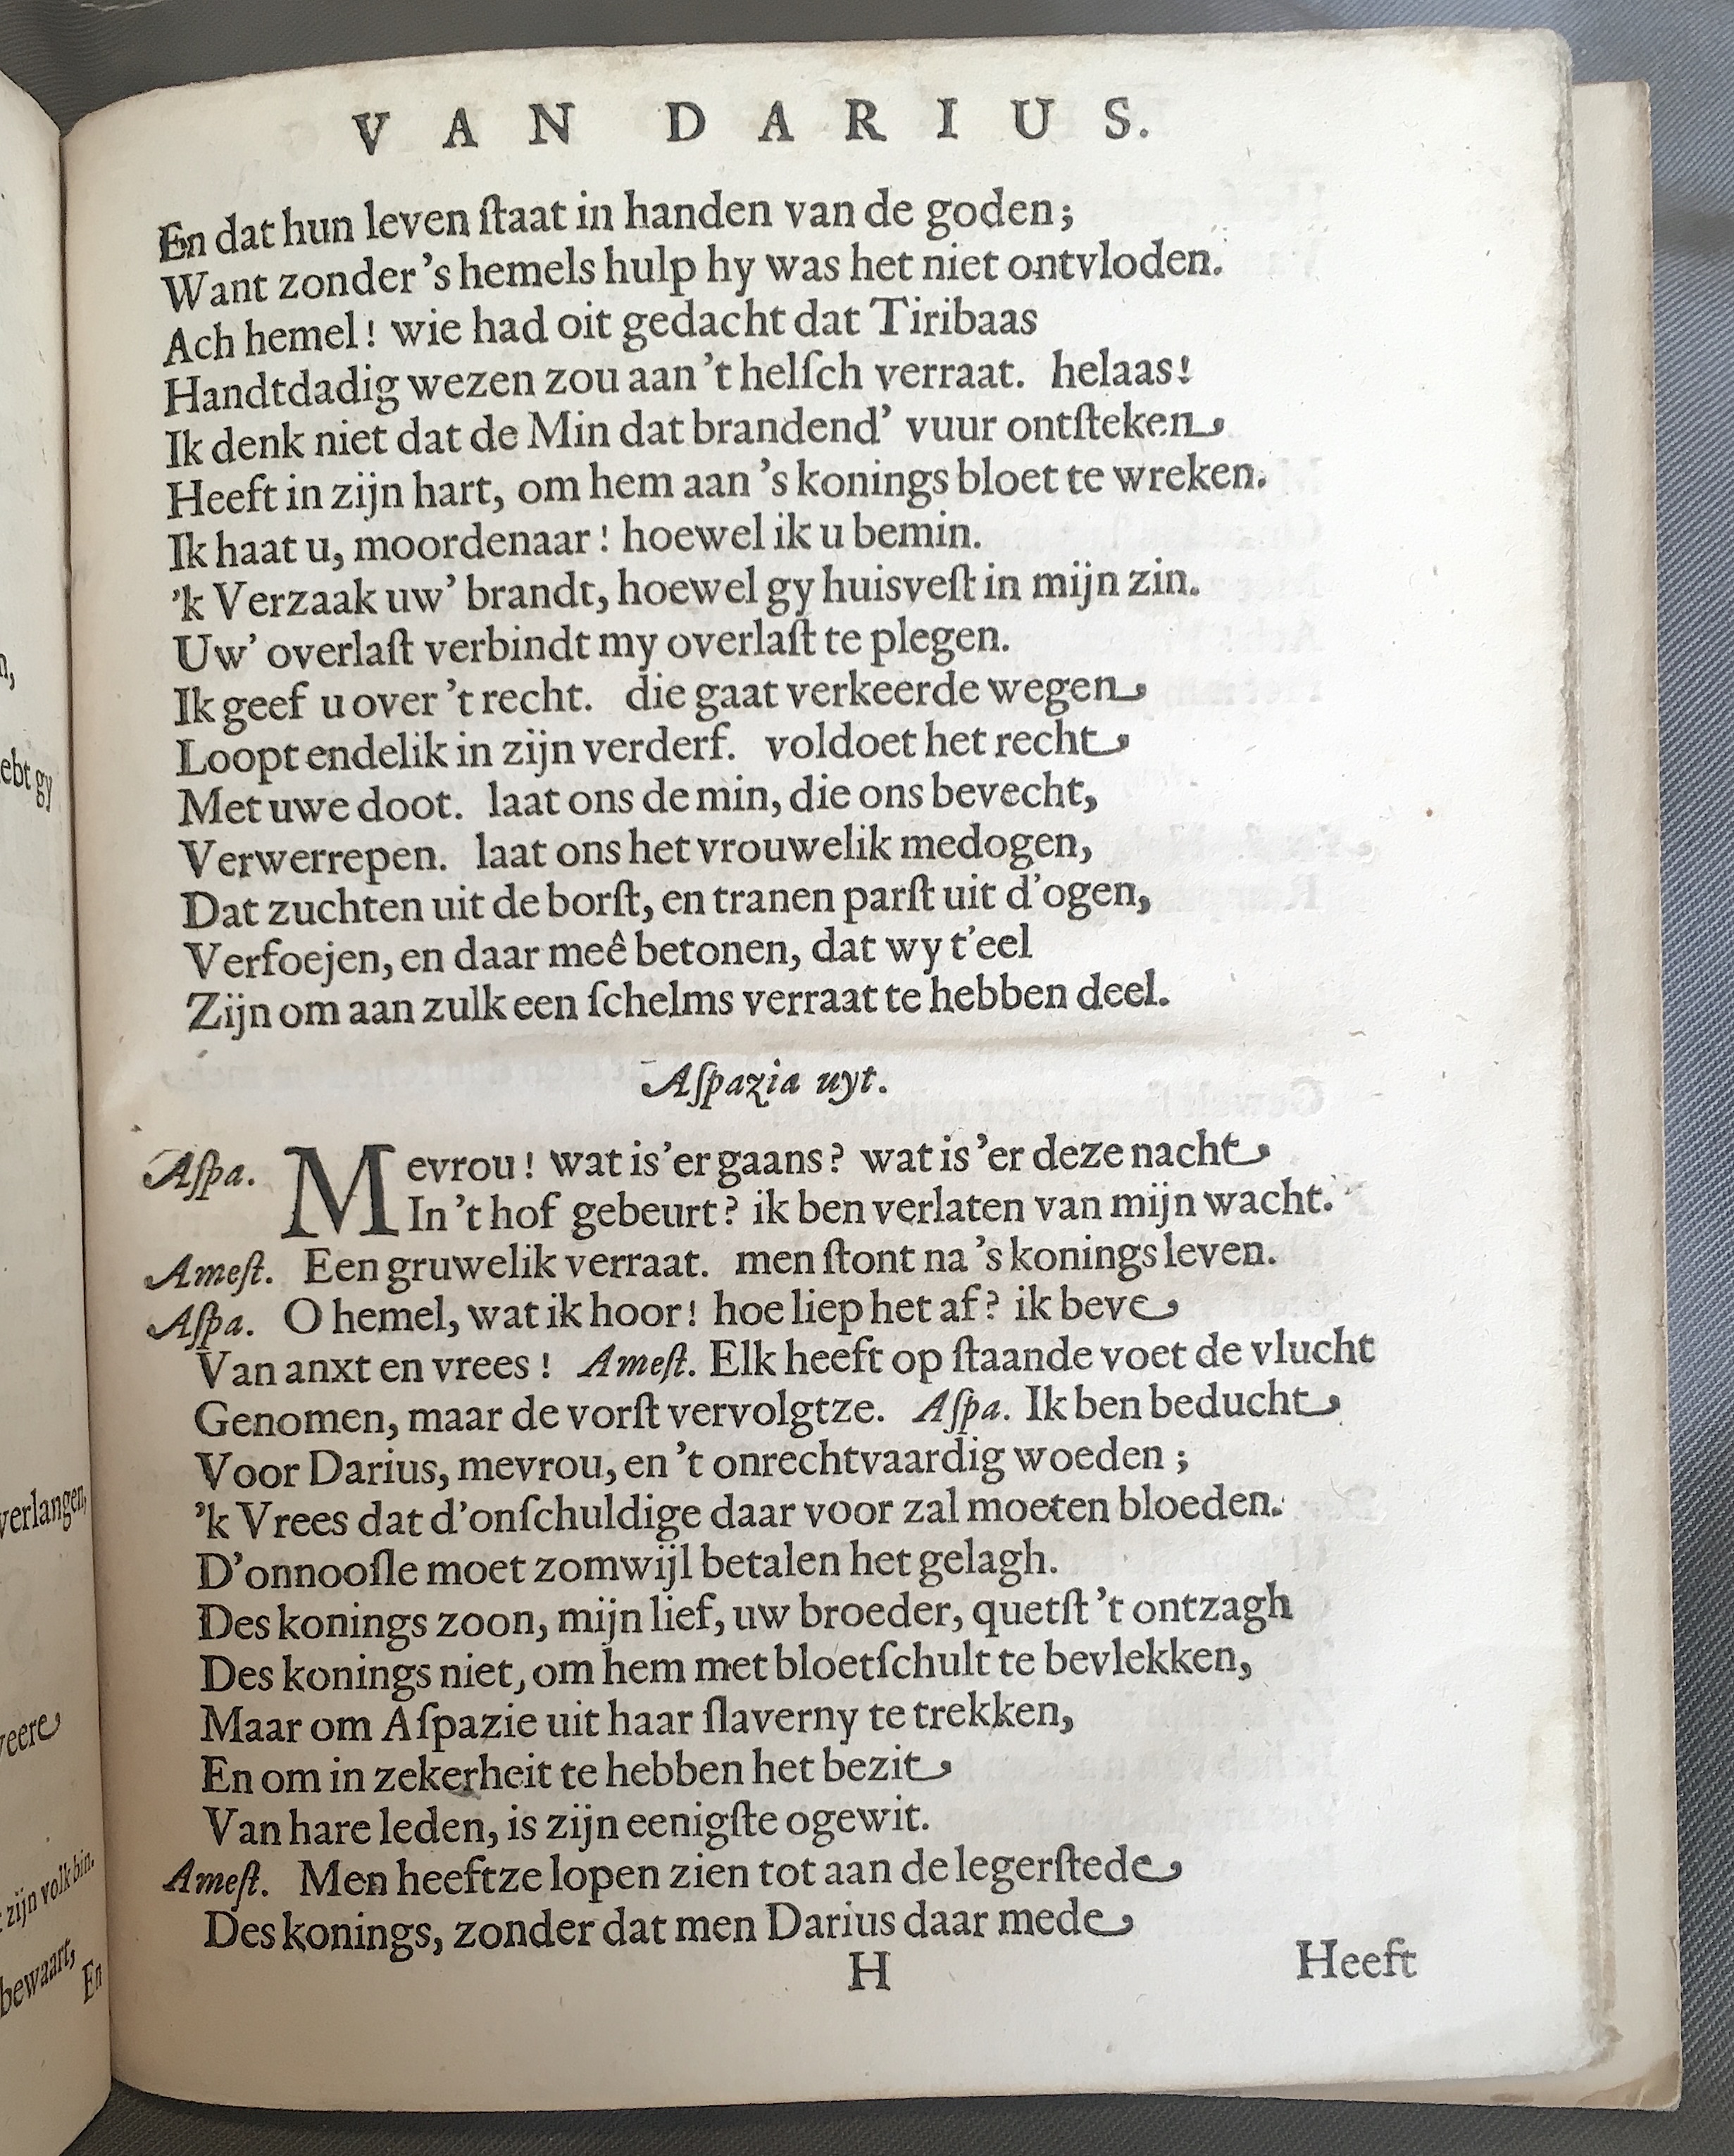 VAN DARIUS.
En dat hun leven ſtaat in handen van de goden;
Want zonder 's hemels hulp hy was het niet ontvloden.
Ach hemel! wie had oit gedacht dat Tiribaas
Handtdadig wezen zou aan 't helſch verraat. helaas!
Ik denk niet dat de Min dat brandend' vuur ontſteken
Heeft in zijn hart, om hem aan 's konings bloet te wreken.
Ik haat u, moordenaar! hoewel ik u bemin.
'k Verzaak uw' brandt, hoewel gy huisveſt in mijn zin.
Uw' overlaſt verbindt my overlaſt te plegen.
Ik geef u over 't recht. die gaat verkeerde wegen
Loopt endelik in zijn verderf. voldoet het recht
Met uwe doot. laat ons de min, die ons bevecht,
Verwerrepen. laat ons het vrouwelik medogen,
Dat zuchten uit de borſt, en tranen parſt uit d'ogen,
Verfoejen, en daar meê betonen, dat wy t'eel
Zijn om aan zulk een ſchelms verraat te hebben deel.
Aſpazia uyt.
Aſpa. Mevrou! wat is 'er gaans? wat is 'er deze nacht
In 't hof gebeurt? ik ben verlaten van mijn wacht.
Ameſt. Een gruwelik verraat. men ſtont na 's konings leven.
Aſpa. O hemel, wat ik hoor! hoe liep het af? ik beve
Van anxt en vrees! Ameſt. Elk heeft op ſtaande voet de vlucht
Genomen, maar de vorſt vervolgtze. Aſpa. Ik ben beducht
Voor Darius, mevrou, en 't onrechtvaardig woeden;
'k Vrees dat d'onſchuldige daar voor zal moeten bloeden.
D'onnooſle moet zomwijl betalen het gelagh.
Des konings zoon, mijn lief, uw broeder, quetſt 't ontzagh
Des konings niet, om hem met bloetſchult te bevlekken,
Maar om Aſpazie uit haar ſlaverny te trekken,
En om in zekerheit te hebben het bezit
Van hare leden, is zijn eenigſte ogewit.
Ameſt. Men heeftze lopen zien tot aan de legerſtede
Des konings, zonder dat men Darius daar mede
H
Heeft
ebt gy
verlangen,
veere
zijn volk bin.
bewaart,
En